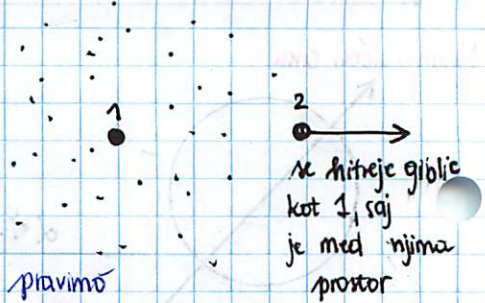 1
2
se hitreje giblje
kot 1, saj
je med njima
prostor
pravimo